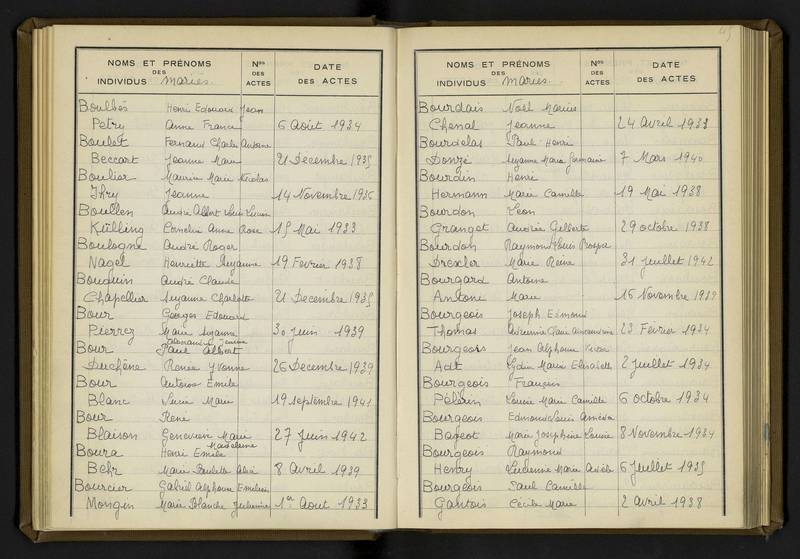 NOMS ET PRÉNOMS
DES
INDIVIDUS Mariés
Nos
DES
ACTES
DATE
DES ACTES
Boulbès Henri Edouard Jean
Petry Anne France 6 Août 1934
Boulet Fernand Charles Antoine
Beccart Jeanne Marie 21 Decembre 1935
Boulier Maurice Marie Nicolas
Jhry Jeanne 14 Novembre 1936
Boullen Andre Albert Louis Lucien
Külling Cornelia Anne Rose 15 Mai 1933
Boulogne André Roger
Nagel Henriette Suzanne 19 Fevrier 1938
Bouquin André Claude
Chapellier Suzanne Charlotte 21 Decembre 1935
Bour Georges Edouard
Pierrez Marie Suzanne 30 Juin 1939
Bour Paul Albert
Duchêne Renée Yvonne 26 Decembre 1939
Bour Antoine Emile
Blanc Marie 19 septembre 1941
Bour René
Blaison Genevieve Marie 27 Juin 1942
Madeleine
Boura Henri Emile
Behr Marie Paulette 8 Avril 1939
Bourcier Gabriel Alphonse Emilien
Mongin Marie Blanche Julienne 1er Aout 1933
NOMS ET PRÉNOMS
DES
INDIVIDUS Mariés.
Nos
DES
ACTES
DATE
DES ACTES
Bourdais Noël Marius
Chenal Jeanne 24 Avril 1933
Bourdelas Paul Henri
Donzé Suzanne Marie Germaine 7 Mars 1940
Bourdin Henri
Hermann Marie Camille 19 Mai 1938
Bourdon Leon
Granget Andrée Gilberte 29 octobre 1938
Bourdon Raymond Louis Prosper
Drexler Marie Reine 31 Juillet 1942
Bourgard Antoine
Antone Marie 16 Novembre
Bourgeois Joseph Edmond
Thomas 23 Février 1934
Bourgeois Jean Alphonse Victor
Adt Lydia Marie Elisabeth 2 Juillet 1934
Bourgeois François
Pélerin Louise Marie Camille 6 octobre 1934
Bourgeois Edmond Louis
Bageot Marie Josephine Louise 8 Novembre 1934
Bourgeois Raymond
Henry Lucienne Marie 6 Juillet 1935
Bourgeois Paul Camille
Gantois Cécile Marie 2 avril 1938